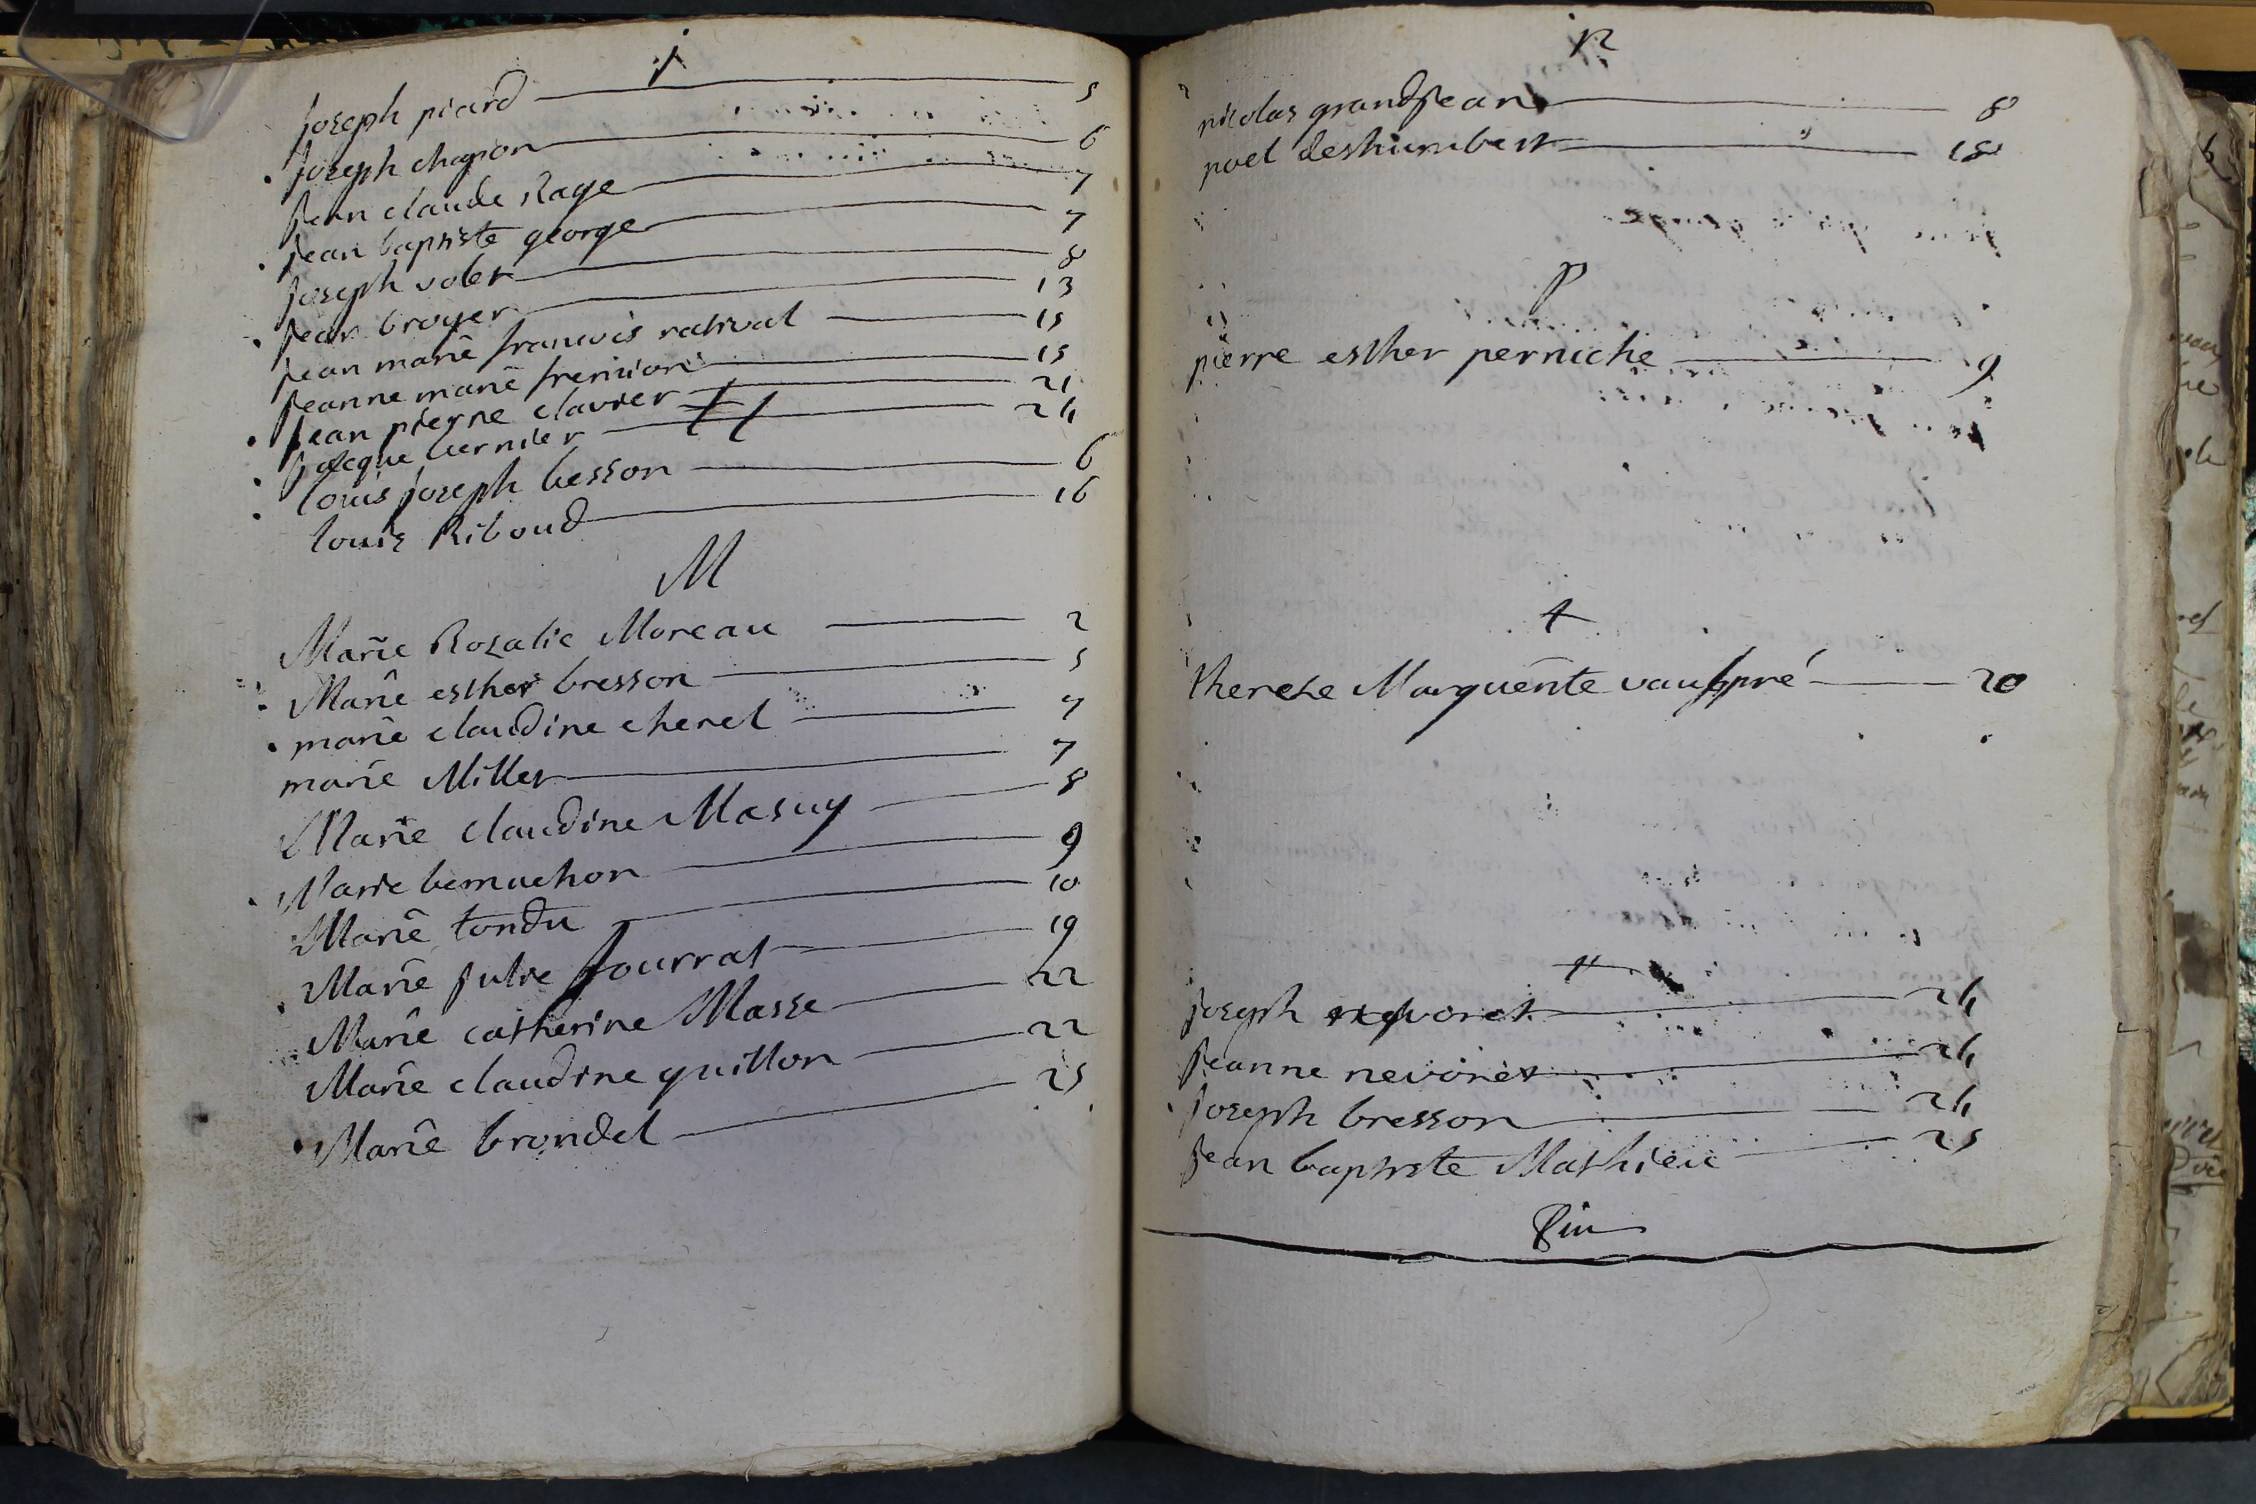 j
joseph picard 5
joseph chapon 6
jean claude Rage 7
jean baptiste george 7
joseph voler 8
jean broyer 13
jean marie francois rativat 15
jeanne marie fremion 15
jean pierre clavier 21
jacque vernier 24
louis joseph besson 6
louis Riboud 16
M
Marie Rosalie Moreau 2
Marie esther bresson 5
marie claudine cheret 7
marie Miller 7
Marie claudine Masuy 8
Marie 9
Marie tondu 10
Marie julie jourrat 19
Marie catherine Masse 22
Marie claudine guillon 22
Marie brondel 25
n
nicolas grandjean 8
noel deshumbert 18
p
pierre esther perniche 9
t
therese Marguerite vauspré 20
joseph 24
jeanne nevoret 24
joseph bresson 24
jean baptiste Mathieu 25
fin